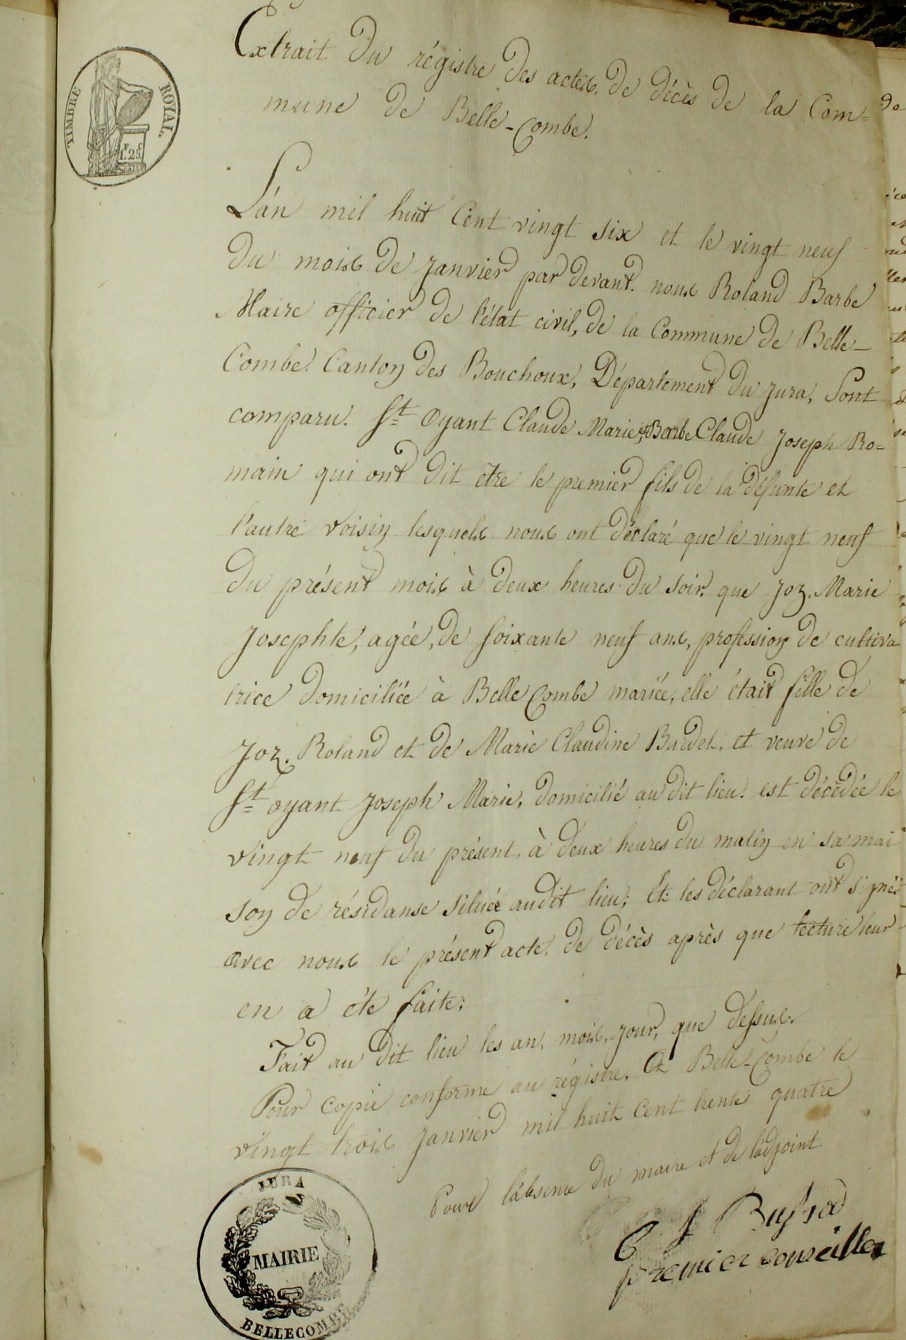 Extrait du régistre des actes de décès de la Com=
mune de Belle-Combe.
TIMBRE ROYAL.
1F.25C
L'án mil huit Cent vingt six et le vingt neuf
du mois de Janvier par devant nous Roland Barbe
Maire officier de l'état civil, de la Commune de Belle-
Combe Canton des Bouchoux, Département du Jura, Sont
comparu St Oyant Claude Marie et Barbe Claude Joseph Ro=
main qui ont dit être le premier fils de la défunte et
l'autre voisin lesquels nous ont déclaré que le vingt neuf
du présent mois à deux heures du soir que Joz. Marie
Josephte, agée, de soixante neuf ans, profession de cultiva
trice domiciliée à Belle Combe mariée, elle était fille de
Joz. Roland et de Marie Claudine Badel, et veuve de
St oyant Joseph Marie, domicilié au dit lieu est décédée le
vingt neuf du présent à deux heures du matin en sa mai
son de résidanse située audit lieu, Et les déclarant ont signé
avec nous le présent acte de décès après que lecture leur
en a éte faite;
Fait au dit lieu les an, mois, jour, que dessus.
Pour copie conforme au régistre. A Belle-Combe le
vingt trois Janvier mil huit cent trente quatre
Pour labsence du maire et de ladjoint
premier conseiller
JURA
MAIRIE
BELLECOMBE